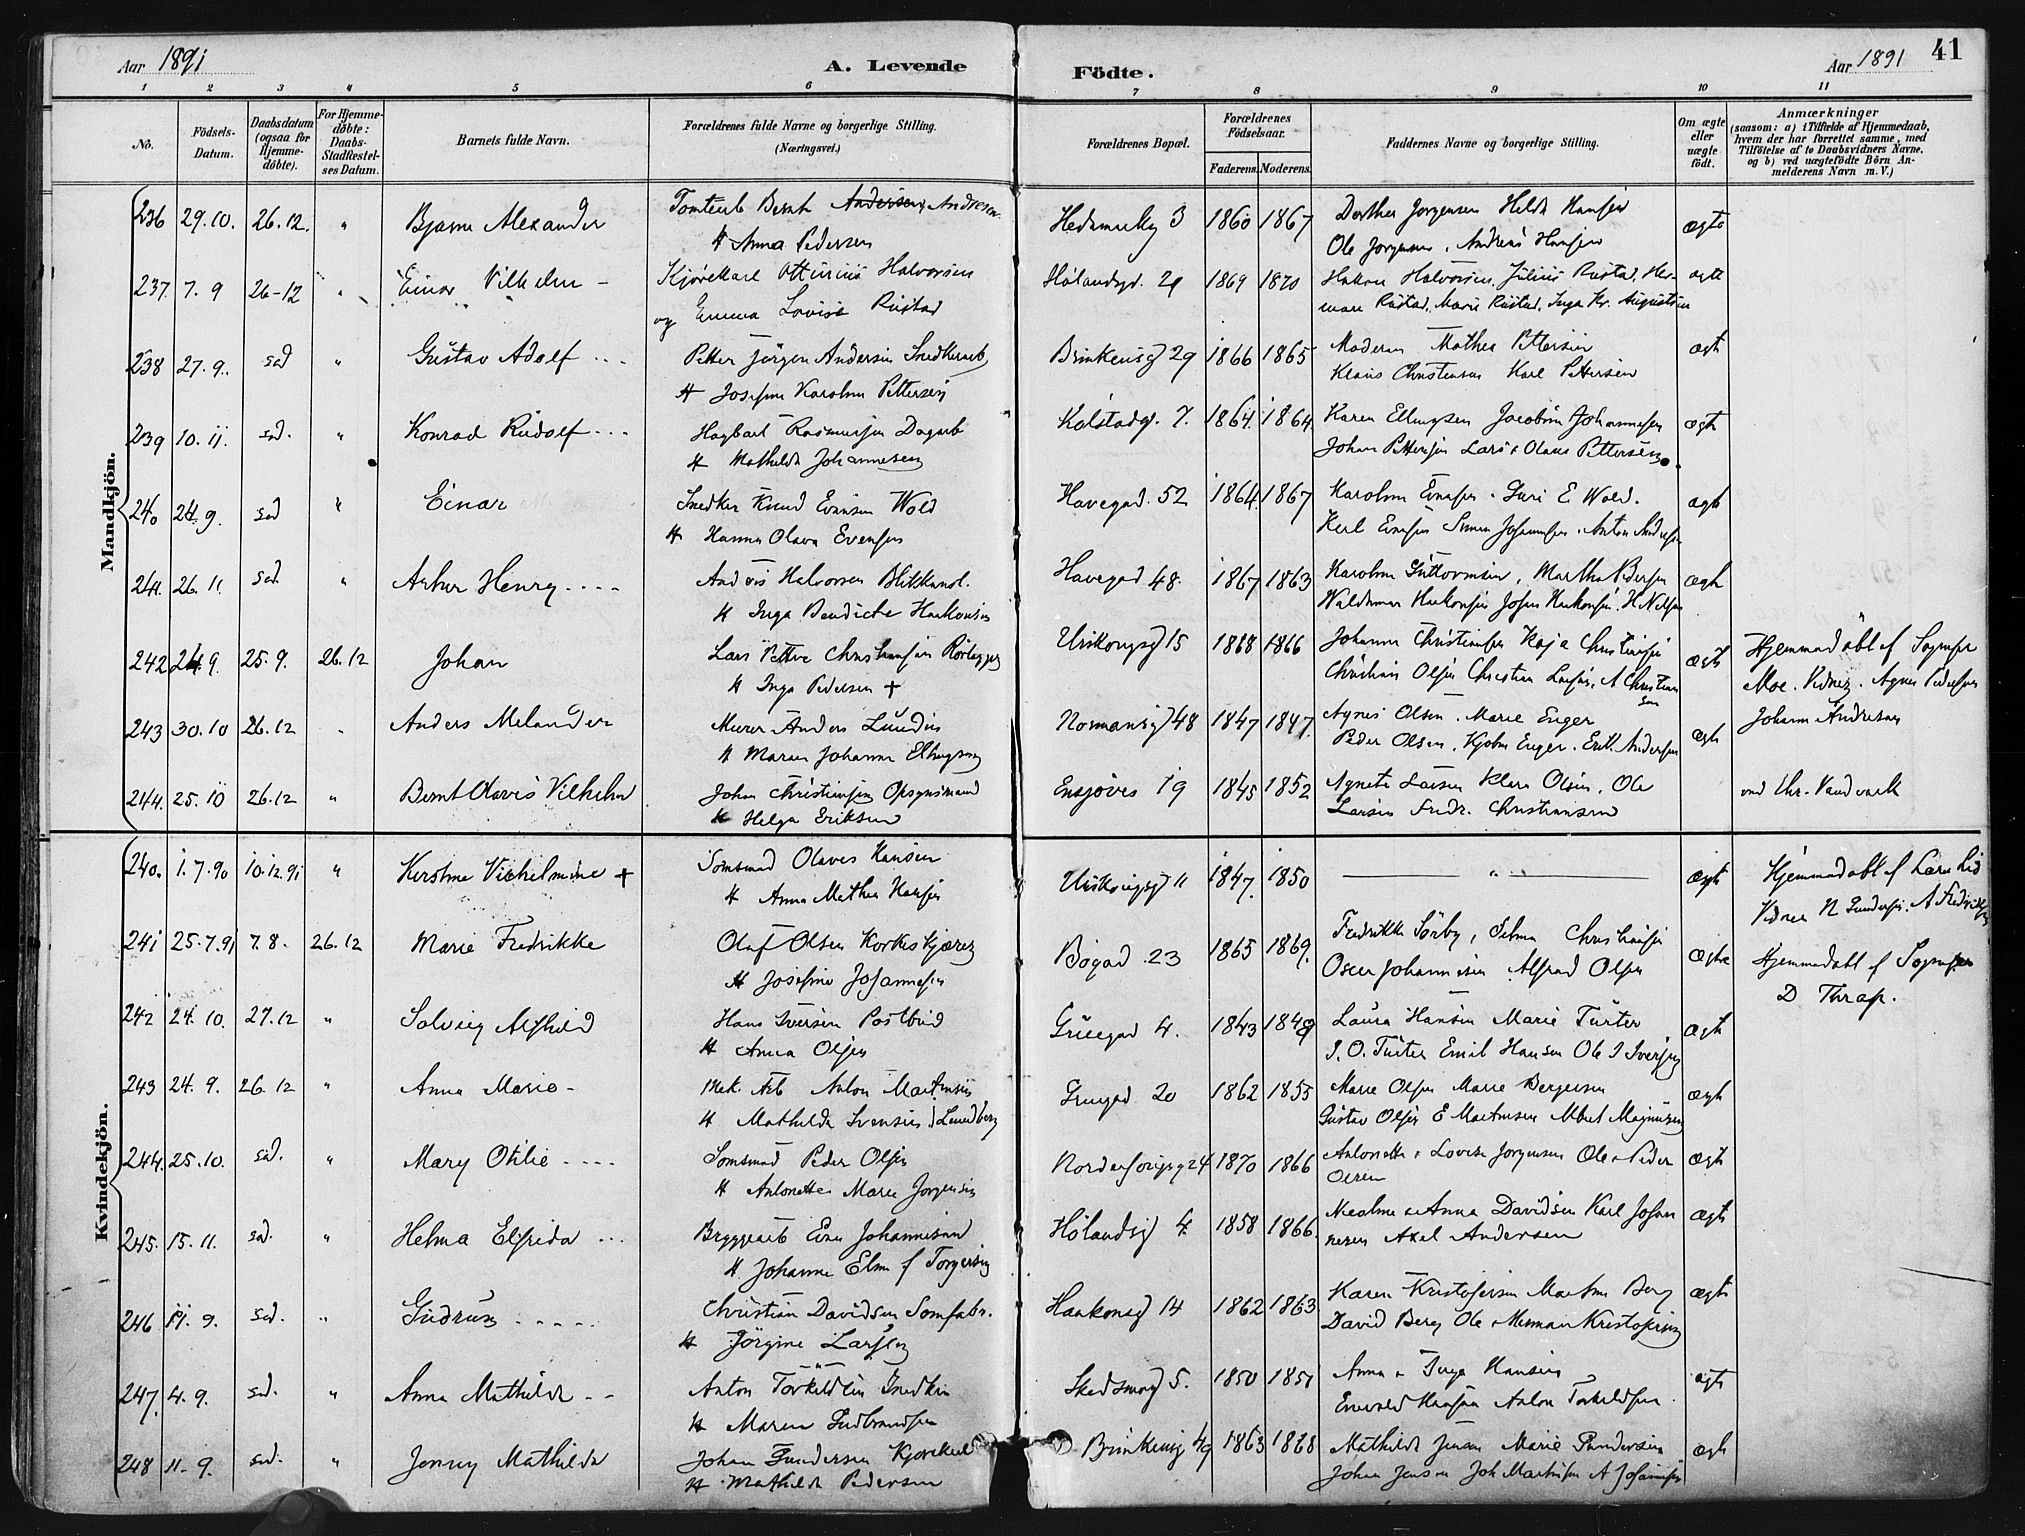 Aar 1891
A. Levende
Födte.
Aar 1891
41
1 2 3 4 5 6 7 8 9 10 11
No.
Födsels-
Datum.
Daabsdatum
(ogsaa for
Hjemme-
döbte).
For Hjemme-
döbte:
Daabs-
Stadfæstel-
ses Datum.
Barnets fulde Navn.
Forældrenes fulde Navne og borgerlige Stilling.
(Næringsvei.)
Forældrenes Bopæl.
Forældrenes
Födselsaar.
Faderens. Moderens.
Faddernes Navne og borgerlige Stilling.
Om ægte
eller
uægte
födt.
Anmærkninger
(saasom: a) i Tilfælde af Hjemmedaab,
hvem der har forrettet samme, med
Tilföielse af to Daabsvidners Navne.
og b) ved uægtefödte Börn An-
melderens Navn m. V.)
Mandkjön.
236 29.10. 26.12. " Bjarne Alexander Tomtearb Bernt Andersen Andresen Hedemarksg 3 1860 1867 Dorthea Jorgensen Hilda Hansen ægte
H Anna Pedersen Ole Jorgensen, Andreas Hansen
237. 7.9 26-12 " Einar Vilhelm - Kjørekarl Ottinius Halvorsen Hølandsgd. 29 1869 1870 Hakon Halvorsen, Julius Rustad, Her- ægte
og Emma Lovise Rustad man Rustad, Marie Rustad, Inga Kr. Augustsen
238 27.9. sad " Gustav Adolf Petter Jörgen Andersen Snedkerarb Brinkensgd 29 1866 1865 Moderen Mathea Pettersen ægte
H Josefine Karoline Pettersen Klaus Christensen Karl Pettersen
239 10.11. sad. " Konrad Rudolf Hagbart Rasmussen Dagarb Kolstadg. 7. 1864. 1864. Karen Ellingsen Jacobine Johannesen ægte
H Mathilde Johannesen Johan Pettersen Lars & Olaus Pettersen
240 24.9. sad " Einar Snedker Knud Evensen Wold Havegad. 52 1864. 1867 Karoline Evensen. Guri E Wold. ægte
H Hanna Olava Evensen Karl Evensen Simen Johannesen. Anton Andersen
241. 26.11. sad. " Arthur Henry Halvorsen Blikkensl. Havegad 48. 1867 1863 Karoline Guttormsen, Martha Pedersen ægte
H Inga Bendicte Haakonsen Waldemar Haakonsen Johan Haakonsen. H Nilsen
242 24.9. 25.9. 26.12 Johan Lars Petter Christiansen Rørlægger 15 1868 1866 Johanne Christiansen Kaja Christiansen ægte Hjemmedöbt af Sognepr
H Inga Pedersen + Christian Olsen Christian Larsen, A Christiansen Moe. Vidner. Agnes Pedersen
Johan Andresen
243 30.10 26.12 Anders Melander Murer Anders Lundin Normansgd 48 1847 1847. Agnes Olsen. Marie Enger ægte
H Maren Johanne Ellingsen Peder Olsen, Enger. Erik Andersen
244. 25.10 26.12 " Bernt Olavus Vilhelm Johan Christiansen Opsynsmand Ensjøvei 19 1845 1852 Agnete Larsen Klara Olsen, Ole
H Helga Eriksen Larsen Fredr. Christiansen
Kvindekjön.
240. 1.7.90 10.12.91 " Kirstine Vilhelmine + Somand Olaves Hansen 11 1847. 1850 " ægte Hjemmedöbt af Lars Lid
H Anna Mathea Hansen Vidner N Gundersen. A Fredriksen
241 25.7.91 7.8. 26.12 Marie Fredrikke Olaf Olsen Korkeskjærer Bøgad. 23 1865 1869. Fredrikke Sørby, Selma Christiansen ægte Hjemmedöbt af Sognepr
H Josefine Johannesen Oscar Johannesen Alfred Olsen D Thrap.
242 24.10. 27.12 " Solveig Alfhild Hans Iversen Postbud Grüegad 4. 1843 1849 Laura Hansen Marie Fürter ægte
H Anna Olsen J. O. Fürter Emil Hansen Ole I Iversen
243 24.9. 26.12 " Anna Marie - Mek. Arb Anton Martinsen Gruegad 20 1862 1855 Marie Olsen Marie Bergersen ægte
H Mathilde Svensen Lundberg Gustav Olsen E Martinsen Albert Magnusen
244. 25.10. sad. " Mary Otilie Somand Peder Olsen 24 1870 1866 Antonette & Lovise Jorgensen Ole & Peder ægte
H Antonette Marie Jorgensen Olsen
245. 15.11. sad. " Helma Elfrida Bryggearb Even Johannesen Hølandsgd 4. 1858 1866. & Anna Davidsen Karl Johan ægte
H. Johanne Elise f Torgersen nesen Axel Andersen
246 19.9. sad. " Gudrun Christian Davidsen Somfabr. Haakonsgd 14 1862 1863 Karen Kristofersen Martine Berg ægte
H Jörgine Larsen David Berg Ole & Herman Kristofersen
247. 4.9. sad. " Anna Mathilde Anton Torkildsen Snedker Skedsmogd 5. 1850 1851 Anna & Inga Hansen ægte
H Maren Gudbrandsen Enevald Hansen Anton Torkildsen
248 11.9. sad. " Jenny Mathilde Johan Gundersen Kjørekarl Brinkensg 49 1863 1868 Mathilde Jensen Marie Gundersen ægte
H Mathilde Pedersen Johan Jensen Joh Martinsen A Johannesen